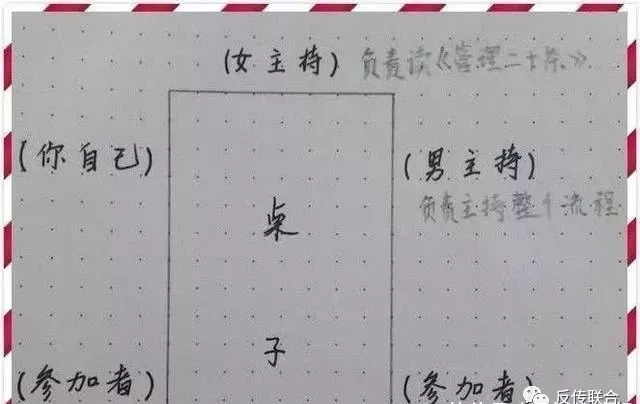 (女主持) 负责读《管理二十条》
(你自己)
(男主持)
负责主持整个流程
桌
子
(参加者)
(参加者)
反传联合